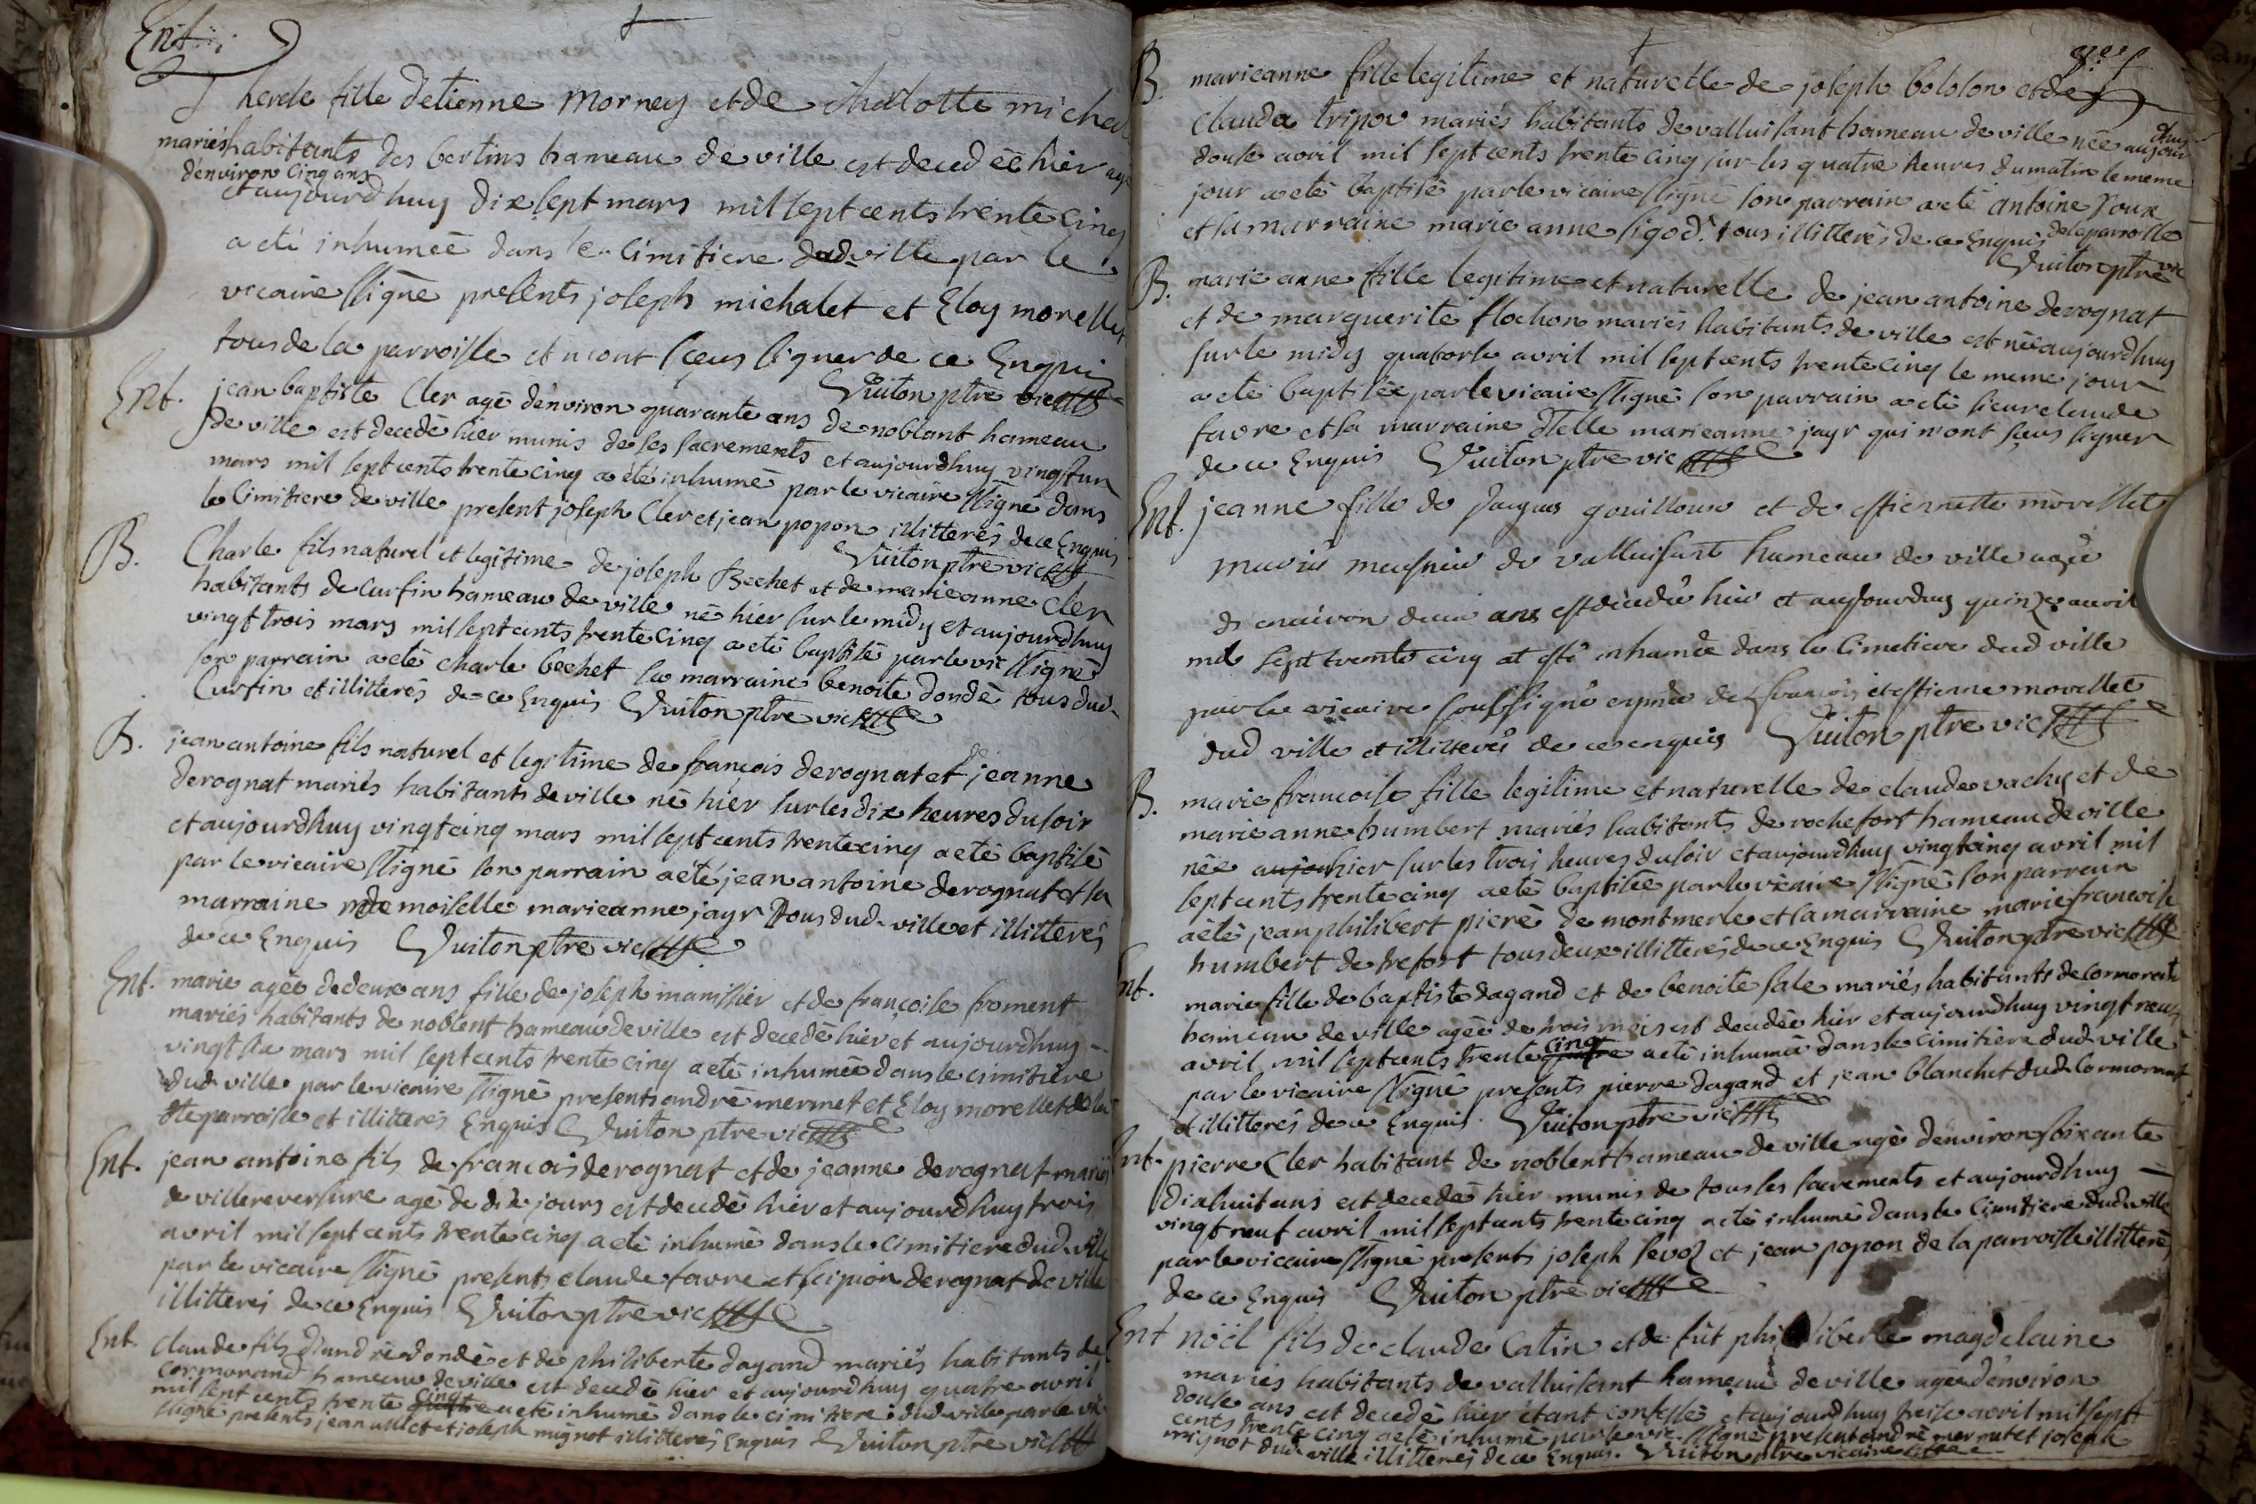 Ent.
therese fille detienne Morney et de charlotte michal
mariés habitants des bertins hameau de ville est decedeé hier agé
d'environ cinq ans
et aujourdhuy dix sept mars mil sept cents trente cinq
a eté inhumeé dans le cimitiere dud ville par le
vicaire ssigné presents joseph michalet et Eloy morellet
tous de la parroisse et n'ont sçeus signer de ce Enquis
Vuiton ptre vic
Ent. jean baptiste Cler agé d'environ quarante ans de noblant hameau
de ville est decedé hier munis de ses sacrements et aujourdhuy vingt un
mars mil sept cents trente cinq a été inhumé par le vicaire ssigné dans
le Cimitiere de ville present joseph Cler et jean popon illitterés de ce Enquis
Vuiton ptre vic
B. Charle fils naturel et legitime de joseph Bechet et de marieanne Cler
habitants de Curfin hameau de ville né hier sur le midy et aujourdhuy
vingt trois mars mil sept cents trente cinq a eté baptisé par le vic ssigné
son parrain a eté charle bechet la marraine benoite dondé tous dud
Curfin et illitterés de ce Enquis Vuiton ptre vic
B. jean antoine fils naturel et legitime de françois derognat et jeanne
derognat mariés habitants de ville né hier sur les dix heures du soir
et aujourdhuy vingt cinq mars mil sept cents trente cinq a eté baptisé
par le vicaire ssigné son parrain a été jean antoine derognat et la
marraine mademoiselle marieanne jayr tous dud ville et illitterés
de ce Enquis Vuiton ptre vic
Ent. marie agée de deux ans fille de joseph manissier et de françoise froment
mariés habitants de noblent hameau de ville est decedé hier et aujourdhuy
vingt six mars mil sept cents trente cinq a eté inhumeé dans le cimitiere
dud ville par le vicaire ssigné presents andré mermet et Eloy morellet de la
dte parroisse et illitterés Enquis Vuiton ptre vic
Ent. jean antoine fils de françois derognat et de jeanne derognat mariés
de villereversure agé de dix jours est decedé hier et aujourdhuy trois
avril mil sept cents trente cinq a eté inhumé dans le cimitiere dud ville
par le vicaire ssigné presents claude favre et scipion derognat de ville
illitterés de ce Enquis Vuiton ptre vic
Ent. claude fils d'andré dondé et de philiberte dagand mariés habitants de
cormorand hameau de ville est decedé hier et aujourdhuy quatre avril
mil sept cents trente cinq a eté inhumé dans le cimitiere dud ville par le vic
ssigné presents jean et joseph mignot illitterés Enquis Vuiton ptre vic
B. marieanne fille legitime et naturelle de joseph bololon et de
Claudа tripoz mariés habitants de valluisant hameau de ville née aujour
dhuy
douse avril mil sept cents trente cinq sur les quatre heures du matin le meme
jour a eté baptisé par le vicaire ssigné son parrain a eté antoine Joux
et la marraine marie anne sigod. tous illitterés de ce Enquis de la parroisse
Vuiton ptre vic
B. marie anne fille legitime et naturelle de jean antoine derognat
et de marguerite flochon mariés habitants de ville est née aujourdhuy
sur le midy quatorse avril mil sept cents trente cinq le meme jour
a eté baptisée par le vicaire ssigné son parrain a eté sieur claude
favre et la marraine dlle marieanne jayr qui n'ont sçeus signer
de ce Enquis Vuiton ptre vic
Ent. jeanne fille de Jacques gouilloux et de estiennette morellet
mariés meusnier de valluisant hameau de ville agée
d'environ deux ans est decedée hier et aujourdhuy quinze avril
mil sept trente cinq at esté inhumée dans le cimetiere dud ville
par le vicaire soubsigné en pnce de françois et estienne morellet
dud ville et illitterés de ce enquis Vuiton ptre vic
B. marie francoise fille legitime et naturelle de claude vachy et de
marie anne humbert mariés habitants de rochefort hameau de ville
née hier sur les trois heures du soir et aujourdhuy vingt cinq avril mil
sept cents trente cinq a eté baptisée par le vicaire ssigné son parrain
a été jean philibert pieré de montmerle et la marraine marie francoise
humbert de trefort tous deux illitterés de ce Enquis Vuiton ptre vic
Ent. marie fille de baptiste dagand et de benoite sale mariés habitants de Cormorant
hameau de ville agéé de trois mois est decedée hier et aujourdhuy vingt neuf
avril mil sept cents trente cinq a eté inhumeé dans le cimitiere dud ville
par le vicaire ssigné presents pierre dagand et jean blanchet dud Cormorant
et illitterés de ce Enquis. Vuiton ptre vic
Ent. pierre Cler habitant de noblent hameau de ville agé d'environ soixante
dix huit ans est decedé hier munis de tous les sacrements et aujourdhuy
vingt neuf avril mil sept cents trente cinq a eté inhumé dans le Cimitiere dud ville
par le vicaire ssigné presents joseph sevoz et jean popon de la parroisse illitterés
de ce Enquis Vuiton ptre vic
Ent noël fils de claude Catin et de fût philiberte magdelaine
mariés habitants de valluisant hameau de ville agé d'environ
douse ans est decedé hier étant confessé et aujourdhuy treise avril mil sept
cents trente cinq a eté inhumé par le vic. ssigné present andré mermet et joseph
mignot dud ville illitterés de ce Enquis. Vuiton ptre vicaire